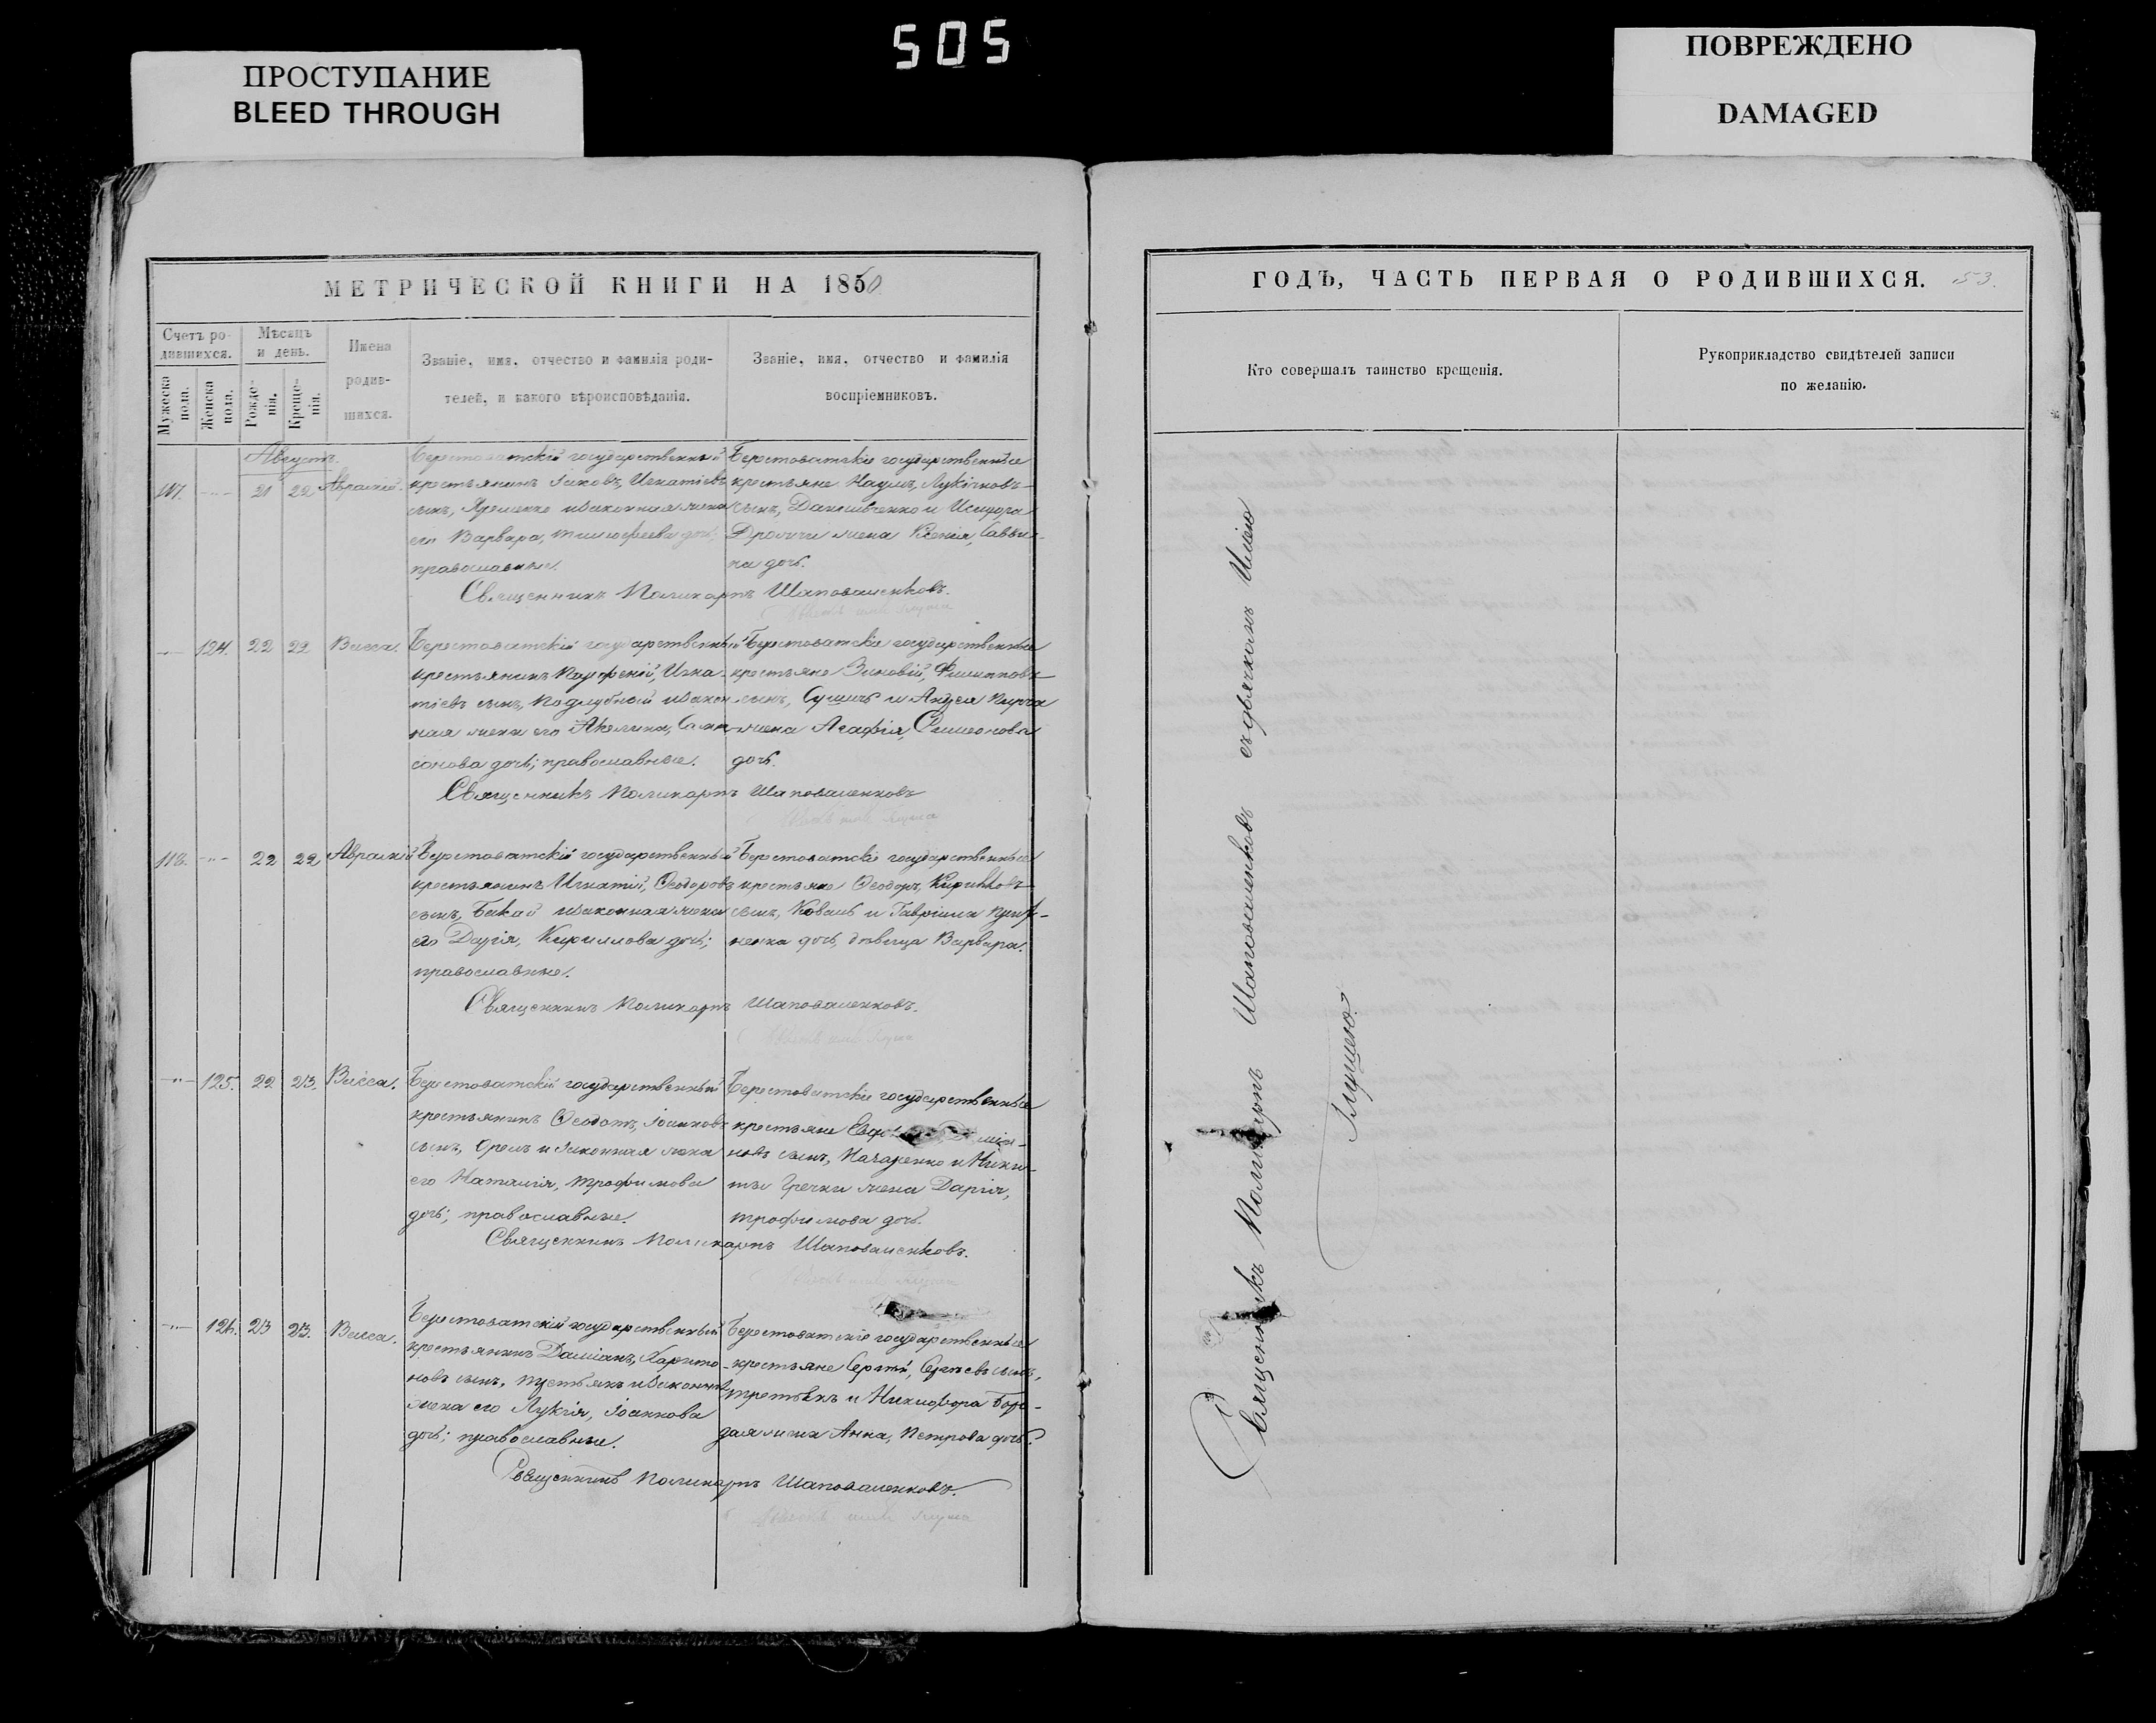 505
ПРОСТУПАНИЕ
BLEED THROUGH
ПОВРЕЖДЕНО
DAMAGED
МЕТРИЧЕСКОЙ КНИГИ НА 1860
Счетъ ро-
дившихся.
Мужеска пола.
Женска пола.
Мѣсяцъ
и день.
Рожде-
нія.
Креще-
нія.
Имена
родив-
шихся.
Званіе, имя, отчество и фамилія роди-
телей, и какого вѣроисповѣданія.
Званіе, имя, отчество и фамилія
воспріемниковъ.
Августъ.
117. 21 22
Берестоватскій государственный
крестьянинъ Іаковъ, Игнатіевъ
сынъ, Яременко и законная жена
его Варвара, Тимофеева дочь;
православные.
Берестоватскіе государственные
крестьяне Наумъ, Лукіяновъ
сынъ, и Исидора
жена Ксенія, Савви-
на дочь.
Священникъ Поликарпъ Шаповаленковъ.
124. 22 22 Васса.
Берестоватскій государственный
крестьянинъ Парфеній, Игна-
тіевъ сынъ, Поддубный и закон-
ная жена его Акелина, Самп-
сонова дочь; православные.
Берестоватскіе государственные
крестьяне Зиновій, Филипповъ
сынъ, и Андрея
жена Агафія, Симеонова
дочь.
Священникъ Поликарпъ Шаповаленковъ
118. 22 22
Берестоватскій государственный
крестьянинъ Игнатій, Ѳеодоровъ
сынъ, Бакай и законная жена
его Дарія, Кириллова дочь;
православные.
Берестоватскіе государственные
крестьяне Ѳеодоръ,
сынъ, Коваль и Гавріила
ненка дочь, дѣвица Варвара.
Священникъ Поликарпъ Шаповаленковъ.
125. 22 23. Васса.
Берестоватскій государственный
крестьянинъ Ѳеодотъ, Іоанновъ
сынъ, Орелъ и законная жена
его Наталія, Трофимова
дочь; православные.
Берестоватскіе государственные
крестьяне
новъ сынъ, и Ники-
ты Гречки жена Дарія,
Трофимова дочь.
Священникъ Поликарпъ Шаповаленковъ.
126. 23 23. Васса.
Берестоватскій государственный
крестьянинъ Даміанъ, Харито-
новъ сынъ, и законная
жена его Лукія, Іоаннова
дочь; православные.
Берестоватскіе государственные
крестьяне Сергій, Сергѣевъ сынъ,
Третьякъ и Никифора
жена Анна, Петрова дочь.
Священникъ Поликарпъ Шаповаленковъ.
ГОДЪ, ЧАСТЬ ПЕРВАЯ О РОДИВШИХСЯ. 53.
Кто совершалъ таинство крещенія.
Рукоприкладство свидѣтелей записи
по желанію.
Священникъ Поликарпъ Шаповаленковъ съ дьячкомъ Иліею
Глущею.